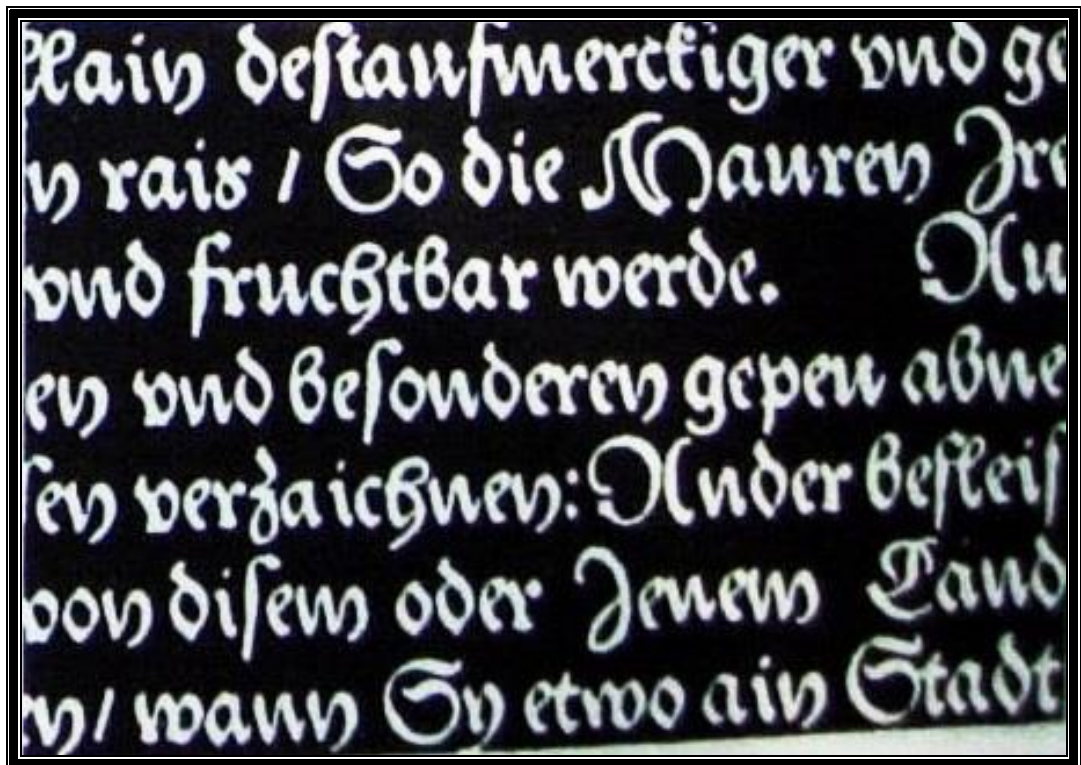 llain deſtaufmerckiger vnd ge
n rais / So die Mauren Jre
vnd fruchtbar werde. Au
en vnd beſonderen gepeu abne
ſen verzaichnen: Ander befleiſ
von diſem oder Jenem Land
en / wann Sy etwo ain Stadt